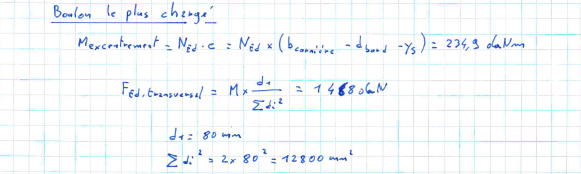 Boulon le plus chargé
Mexcentrement = NEd · e = NEd x (bcornière - dbord - ys) = 234,9 daNm
FEd,transversal = M x d1 / Σdi² = 1468 daN
d1 = 80 mm
Σdi² = 2 x 80² = 12800 mm²